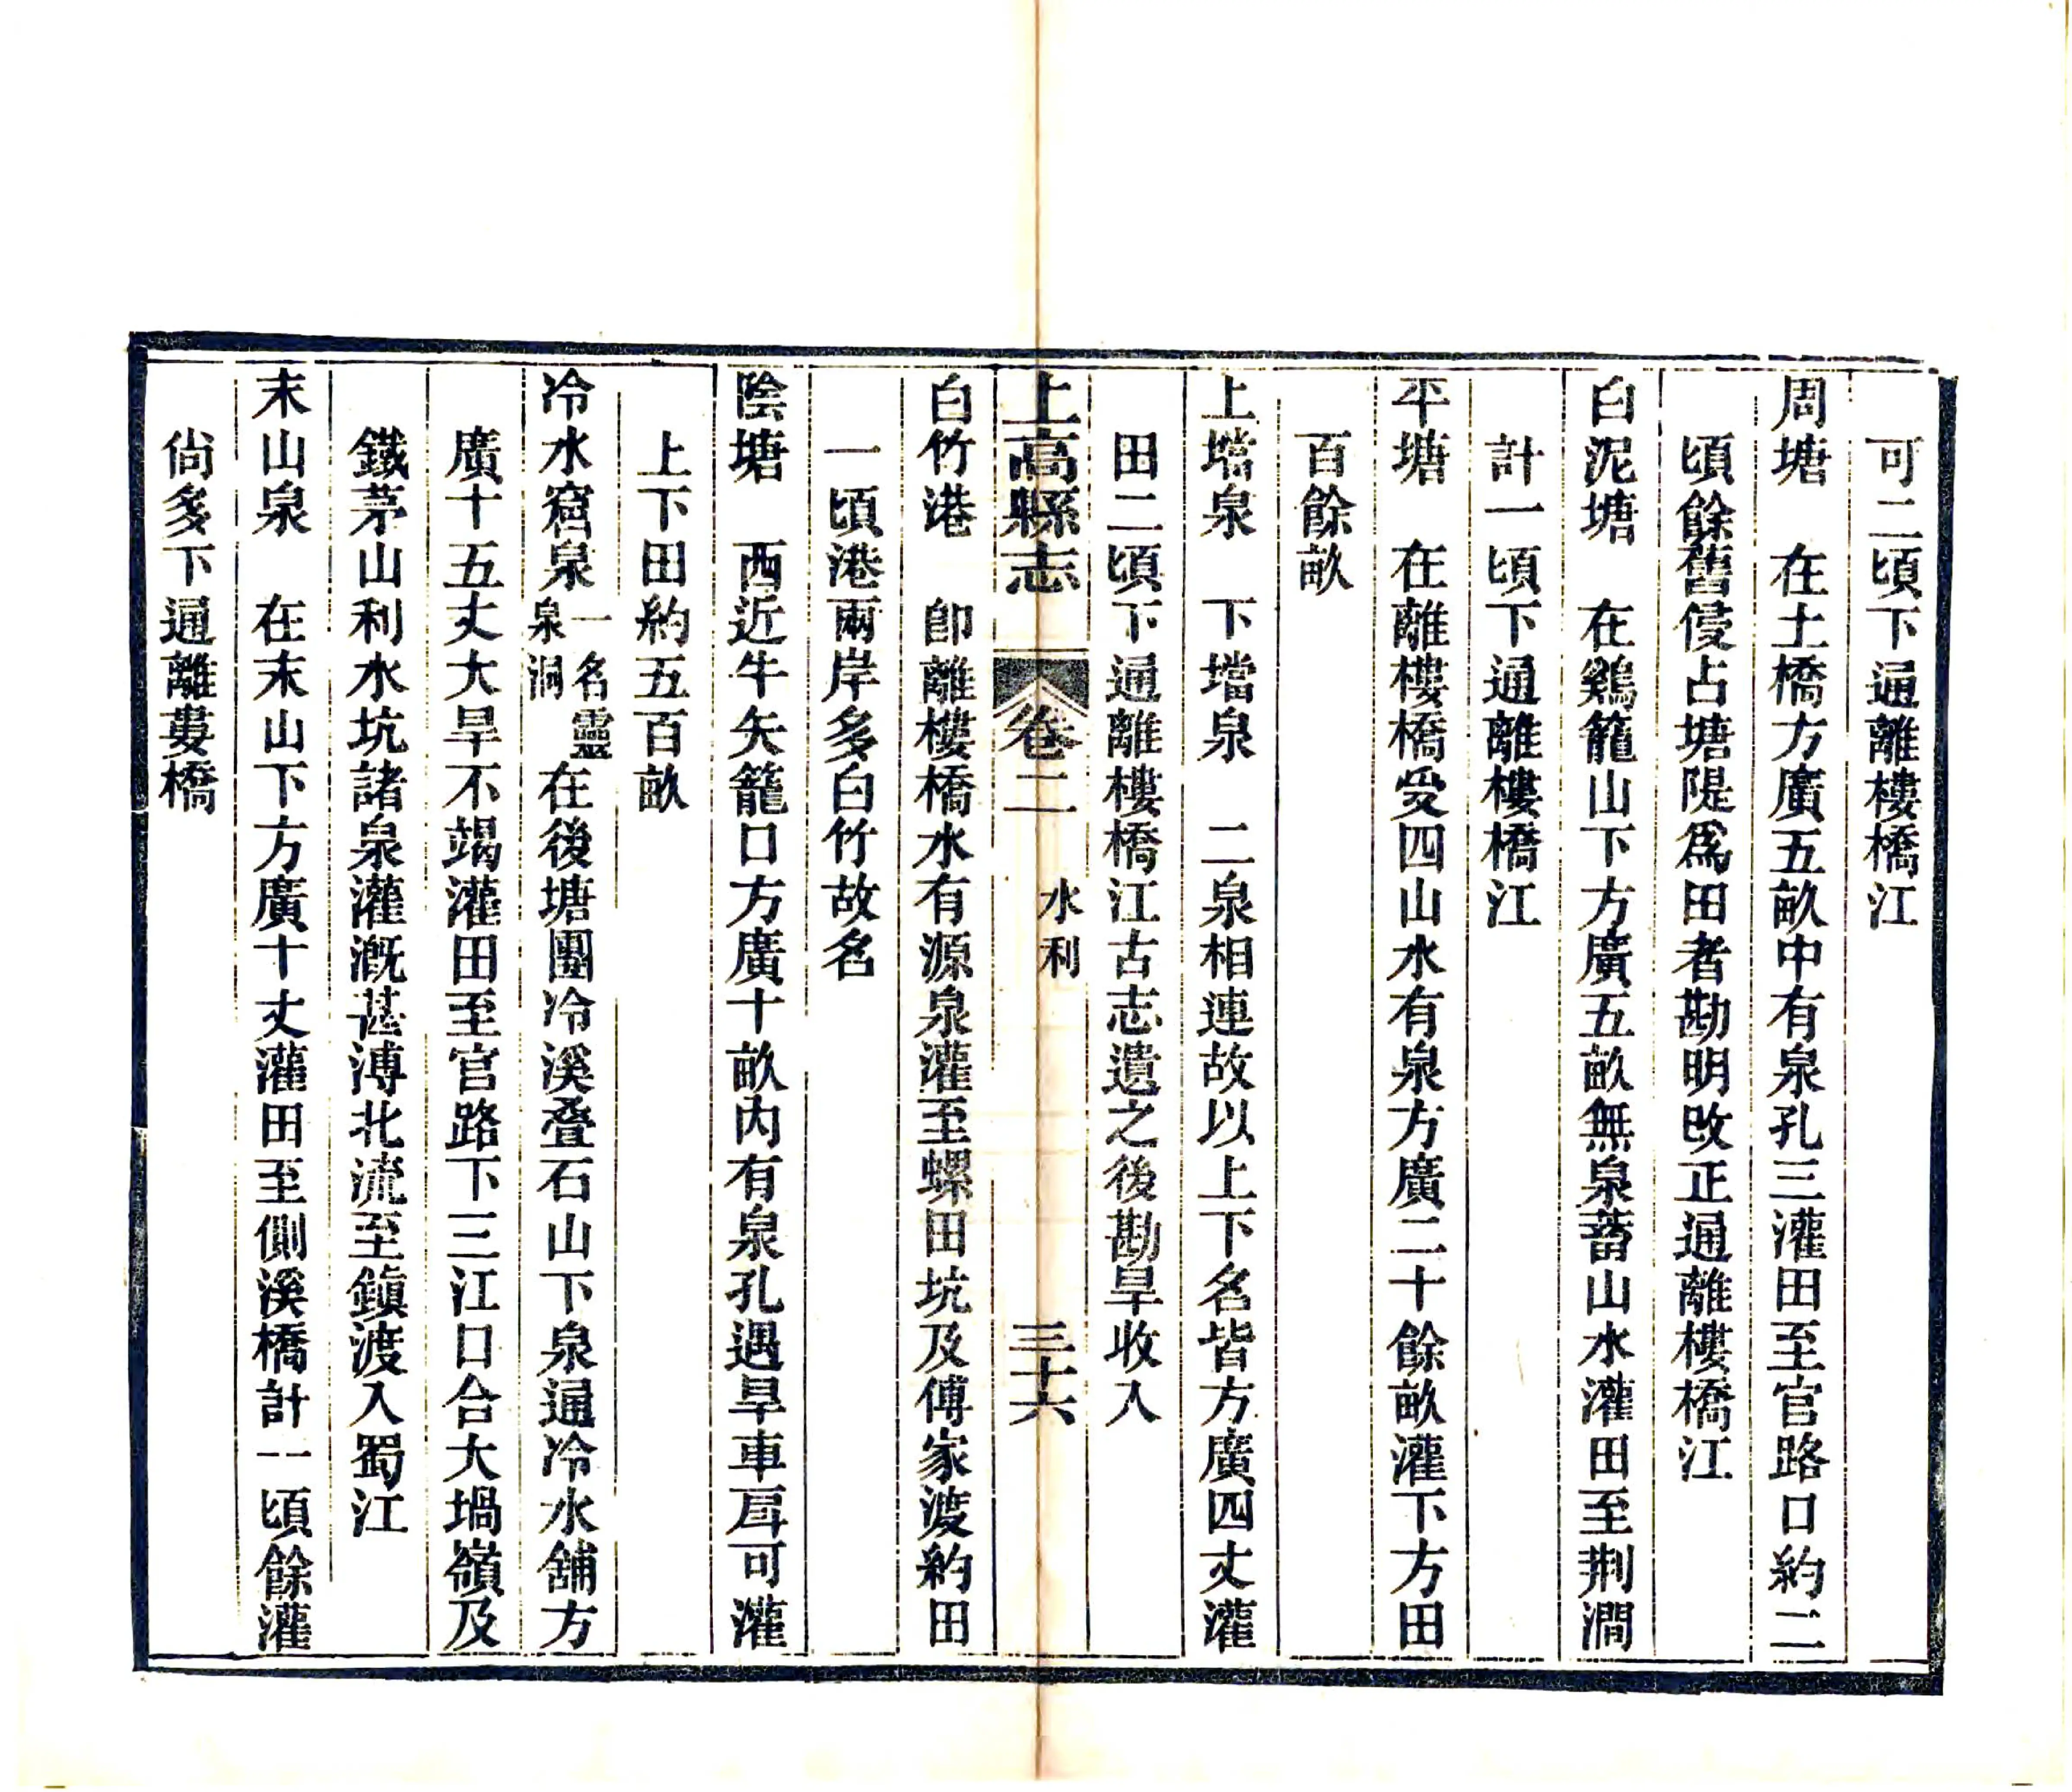 可二頃下通離樓橋江
周塘　在土橋方廣五畝中有泉孔三灌田至官路口約二
頃餘舊侵占塘隄爲田者勘明改正通離樓橋江
白泥塘　在鷄籠山下方廣五畝無泉蓄山水灌田至荆澗
計一頃下通離樓橋江
平塘　在離樓橋受四山水有泉方廣二十餘畝灌下方田
百餘畝
上壋泉　下壋泉　二泉相連故以上下名皆方廣四丈灌
田二頃下通離樓橋江古志遺之後勘旱收入
上高縣志　卷二　水利　三十六
白竹港　卽離樓橋水有源泉灌至螺田坑及傅家渡約田
一頃港兩岸多白竹故名
陰塘　西近牛矢籠口方廣十畝内有泉孔遇旱車戽可灌
上下田約五百畝
冷水窟泉一名靈泉洞在後塘團冷溪叠石山下泉通冷水舖方
廣十五丈大旱不竭灌田至官路下三江口合大堝嶺及
鐵茅山利水坑諸泉灌漑甚溥北流至鎮渡入蜀江
末山泉　在末山下方廣十丈灌田至側溪橋計一頃餘灌
尙多下通離婁橋